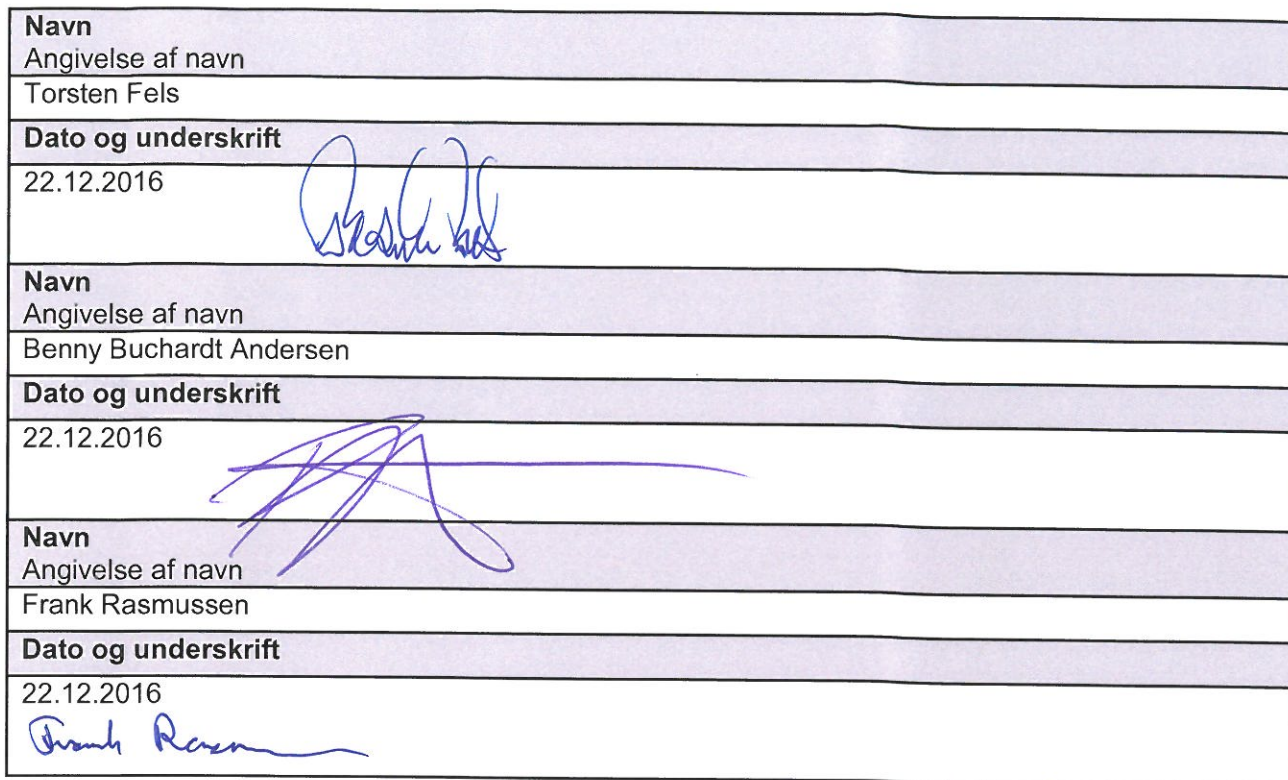 Navn
Angivelse af navn
Torsten Fels
Dato og underskrift
22.12.2016
Navn
Angivelse af navn
Benny Buchardt Andersen
Dato og underskrift
22.12.2016
Navn
Angivelse af navn
Frank Rasmussen
Dato og underskrift
22.12.2016